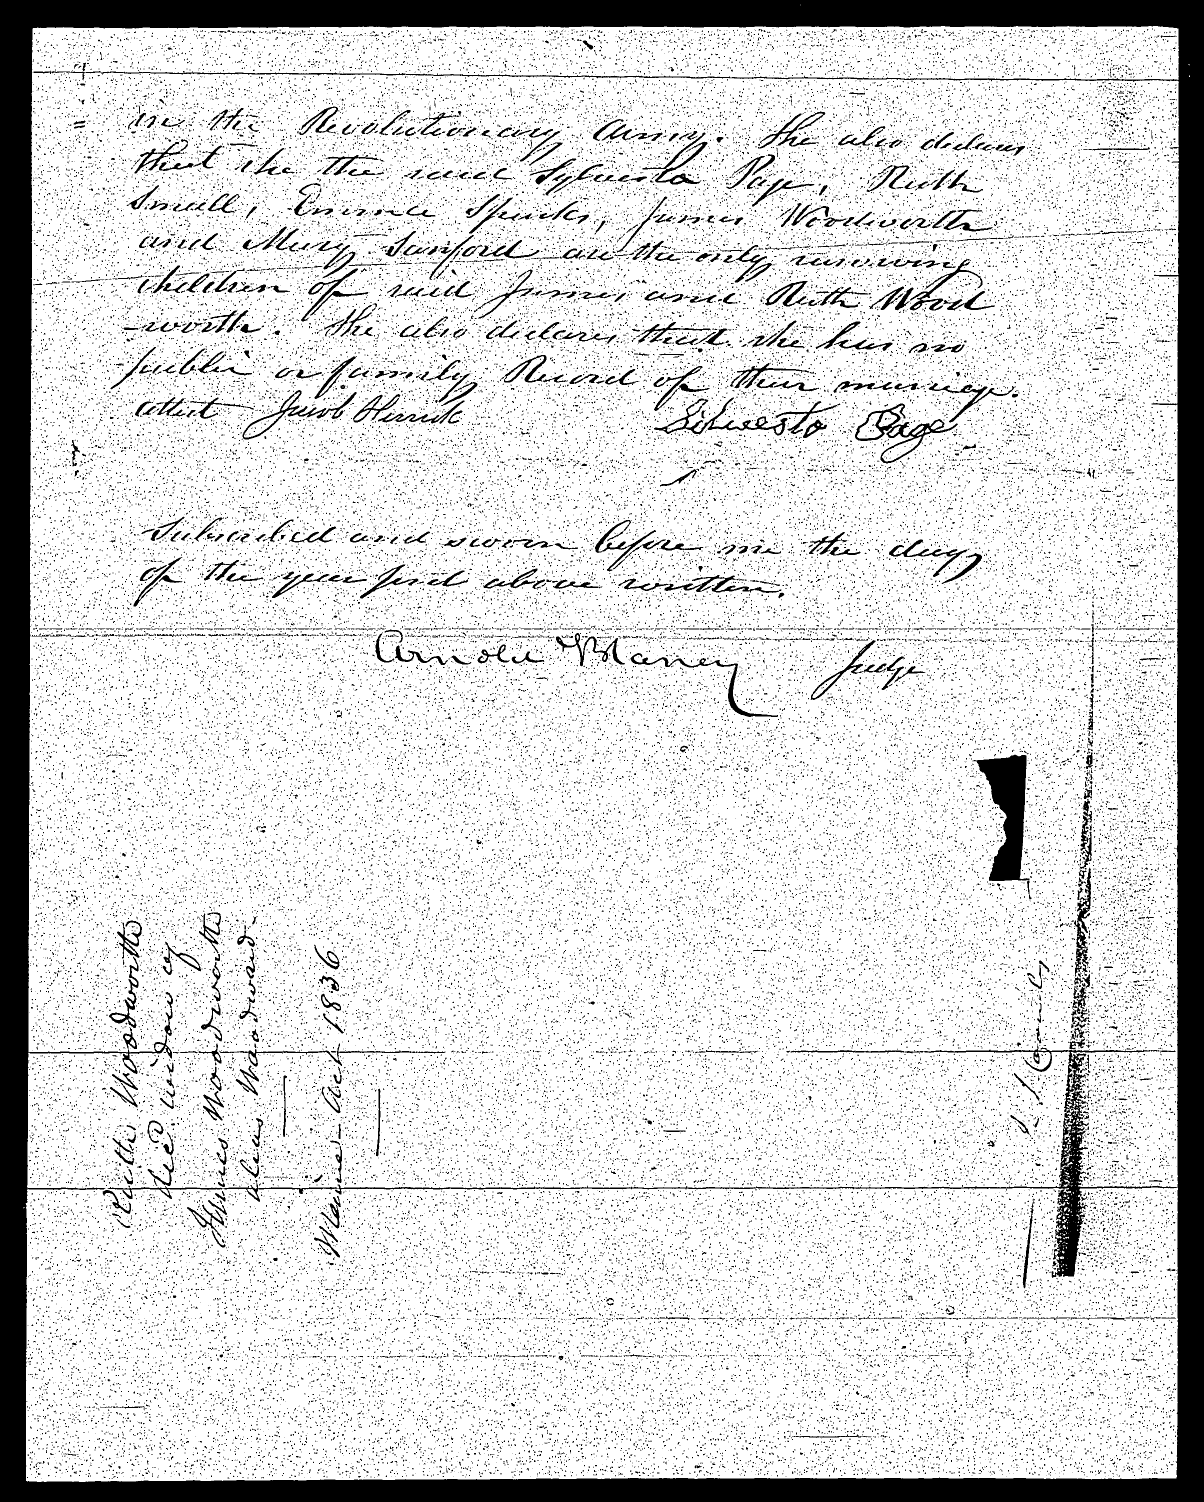 in the Revolutionary Army. She also declares
that she the said Sylvesta Page, Ruth
Small, Emma Spinks, James Woodworth
and Mary Sanford are the only surviving
children of said James and Ruth Wood
-worth. She also declares that she has no
public or family Record of their marriage.
attest Jacob Herrick Silvesta Page
Subscribed and sworn before me the day
of the year first above written.
Arnold Blaney Judge
Ruth Woodworth
decd. widow of
James Woodworth
alias Woodward-
Maine- Act 1836